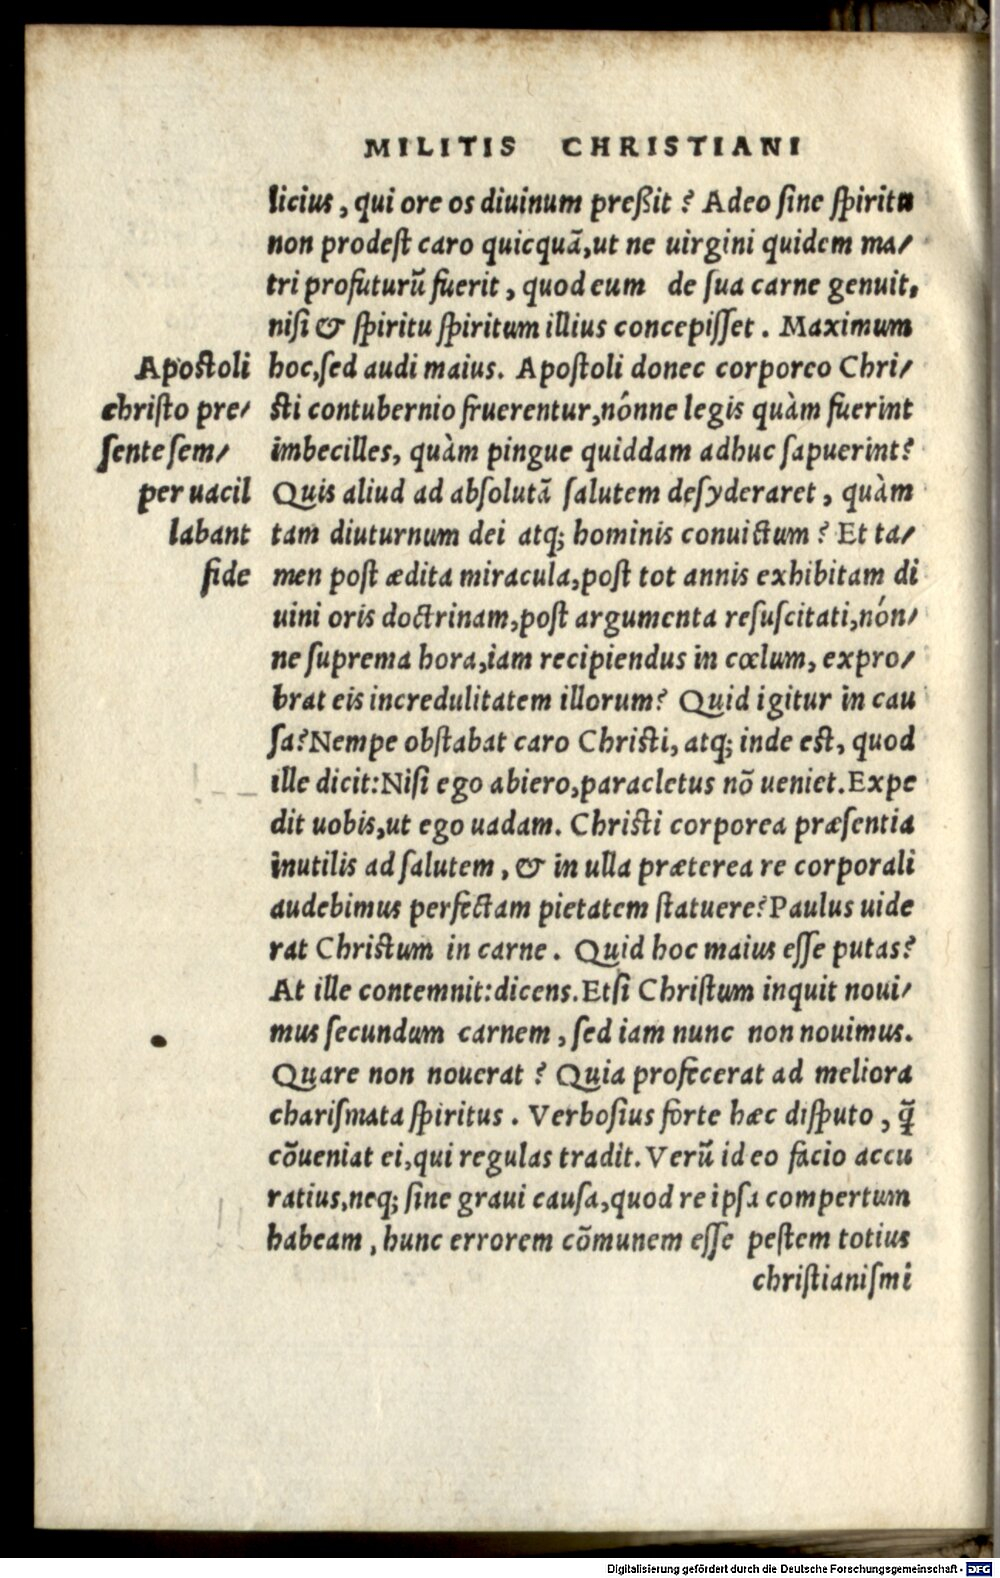 MILITIS CHRISTIANI
licius, qui ore os diuinum preßit? Adeo ſine ſpiritu
non prodeſt caro quicquā, ut ne uirgini quidem ma/
tri profuturū fuerit, quod eum de ſua carne genuit,
niſi & ſpiritu ſpiritum illius concepiſſet. Maximum
hoc, ſed audi maius. Apoſtoli donec corporeo Chri/
ſti contubernio fruerentur, nónne legis quàm fuerint
imbecilles, quàm pingue quiddam adhuc ſapuerint?
Quis aliud ad abſolutā ſalutem deſyderaret, quàm
tam diuturnum dei atq; hominis conuictum? Et ta/
men poſt ædita miracula, poſt tot annis exhibitam di
uini oris doctrinam, poſt argumenta reſuſcitati, nón/
ne ſuprema hora, iam recipiendus in cœlum, expro/
brat eis incredulitatem illorum? Quid igitur in cau
ſa? Nempe obſtabat caro Chriſti, atq; inde eſt, quod
ille dicit: Niſi ego abiero, paracletus nō ueniet. Expe
dit uobis, ut ego uadam. Chriſti corporea præſentia
inutilis ad ſalutem, & in ulla præterea re corporali
audebimus perfectam pietatem ſtatuere? Paulus uide
rat Chriſtum in carne. Quid hoc maius eſſe putas?
At ille contemnit: dicens. Etſi Chriſtum inquit noui/
mus ſecundum carnem, ſed iam nunc non nouimus.
Quare non nouerat? Quia profecerat ad meliora
chariſmata ſpiritus. Verboſius forte hæc diſputo, q̄
cōueniat ei, qui regulas tradit. Verū id eo facio accu
ratius, neq; ſine graui cauſa, quod re ipſa compertum
habeam, hunc errorem cōmunem eſſe peſtem totius
chriſtianiſmi
Apoſtoli
chriſto pre/
ſente ſem/
per uacil
labant
fide
Digitalisierung gefördert durch die Deutsche Forschungsgemeinschaft - DFG